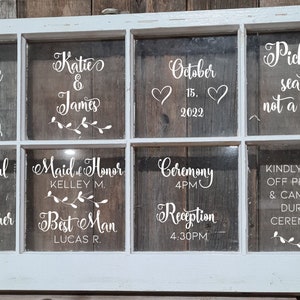 Katie
&
James
October
15,
2022
Pick
sea
not a
Maid of Honor
KELLEY M.
Best Man
LUCAS R.
Ceremony
4PM
Reception
4:30PM
KINDLY
OFF P
& CAM
DUR
CEREM